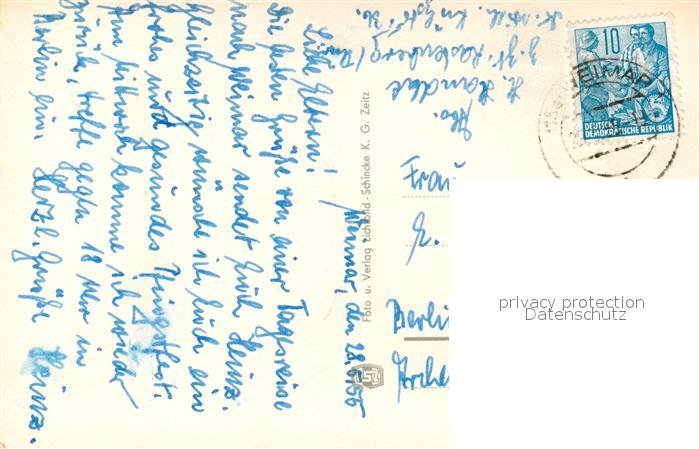 Weimar, den 28.5.55
Liebe Eltern!
Die besten Grüße von einer Tagesreise
nach Weimar sendet Euch Heinz.
Gleichzeitig wünsche ich Euch ein
frohes und gesundes Pfingstfest.
Am Mittwoch komme ich wieder
zurück, treffe gegen 18 Uhr in
Berlin ein. Herzl. Grüße Heinz.
Foto u. Verlag Lichtbild-Schincke K. G. Zeitz
LSZ
Abs.
H.
z. Zt. Rastenberg/Thür
10
DEUTSCHE
DEMOKRATISCHE REPUBLIK
5
WEIMAR
Berlin
privacy protection
Datenschutz